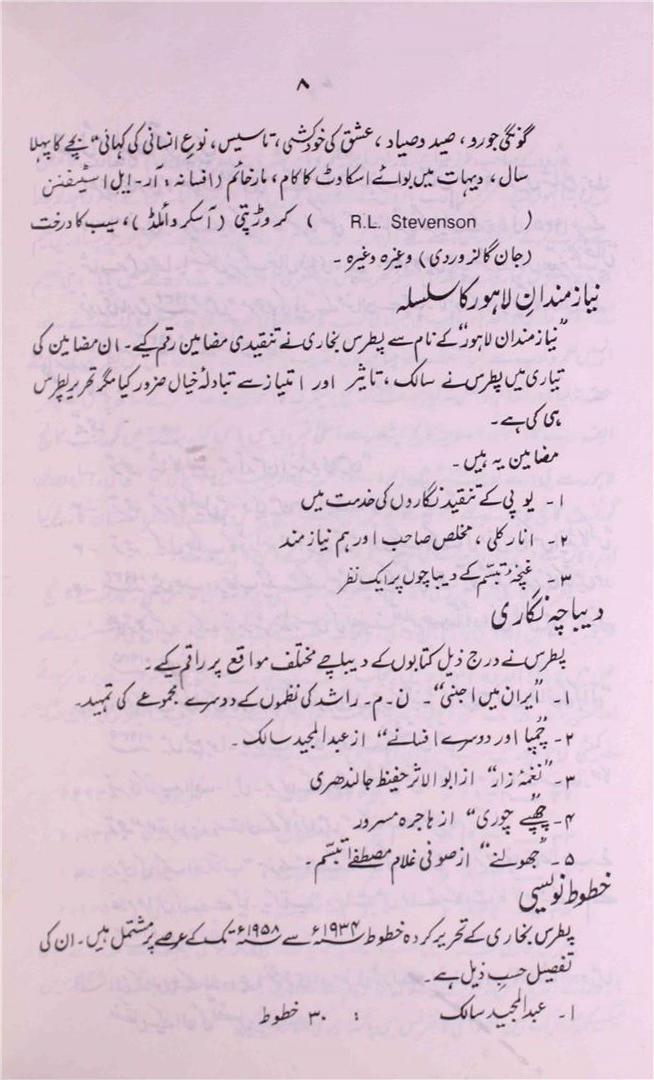 ۸
گونگی جورو، صید و صیاد، عشق کی خودکشی، تاسیس، نوع انسانی کی کہانی" بچے کا پہلا
سال، دیہات میں بوائے اسکاوٹ کا کام، مارخائم (افسانہ: آر- ایل اسٹیفنسن
(R.L. Stevenson) کروڑپتی (آسکر وائلڈ)، سیب کا درخت
(جان گالزوردی) وغیرہ وغیرہ -
نیازمندانِ لاہور کا سلسلہ
"نیازمندان لاہور" کے نام سے پطرس بخاری نے تنقیدی مضامین رقم کیے۔ ان مضامین کی
تیاری میں پطرس نے سالک، تاثیر اور امتیاز سے تبادلۂ خیال ضرور کیا مگر تحریر پطرس
ہی کی ہے۔
مضامین یہ ہیں۔
۱۔ یوپی کے تنقید نگاروں کی خدمت میں
۲۔ انارکلی، مخلص صاحب اور ہم نیازمند
۳۔ غنچۂ تبسّم کے دیباچوں پر ایک نظر
دیباچہ نگاری
پطرس نے درج ذیل کتابوں کے دیباچے مختلف مواقع پر راقم کیے۔
۱۔ "ایران میں اجنبی"۔ ن۔م۔ راشد کی نظموں کے دوسرے مجموعے کی تمہید۔
۲۔ "چمپا اور دوسرے افسانے" از عبدالمجید سالک۔
۳۔ "نغمۂ زار" از ابوالاثر حفیظ جالندھری
۴۔ "چھپے چوری" از ہاجرہ مسرور
۵۔ "جھولنے" از صوفی غلام مصطفےٰ تبسّم۔
خطوط نویسی
پطرس بخاری کے تحریر کردہ خطوط ۱۹۳۴ء سے ۱۹۵۸ء تک کے عرصے پر مشتمل ہیں۔ ان کی
تفصیل حسبِ ذیل ہے۔
۱۔ عبدالمجید سالک : ۳۰ خطوط